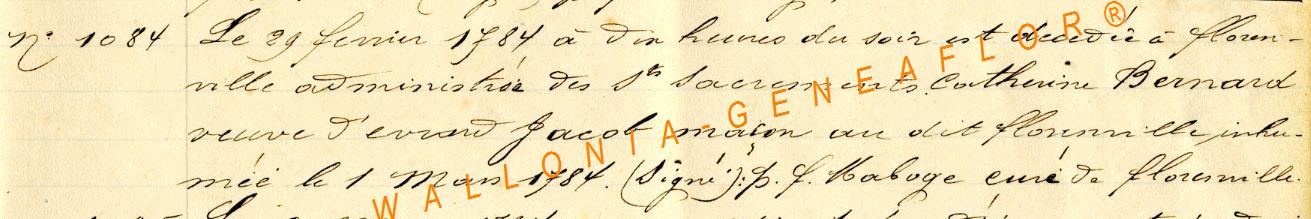 N° 1084 Le 29 fevrier 1784 à dix heures du soir est décédée à floren-
ville administrée des Sts Sacrements Catherine Bernard
veuve d'evrard Jacob maçon au dit florenville, inhu-
mée le 1 Mars 1784. (Signé): p. f. Maboge curé de florenville.
WALLONIA-GENEAFLOR®